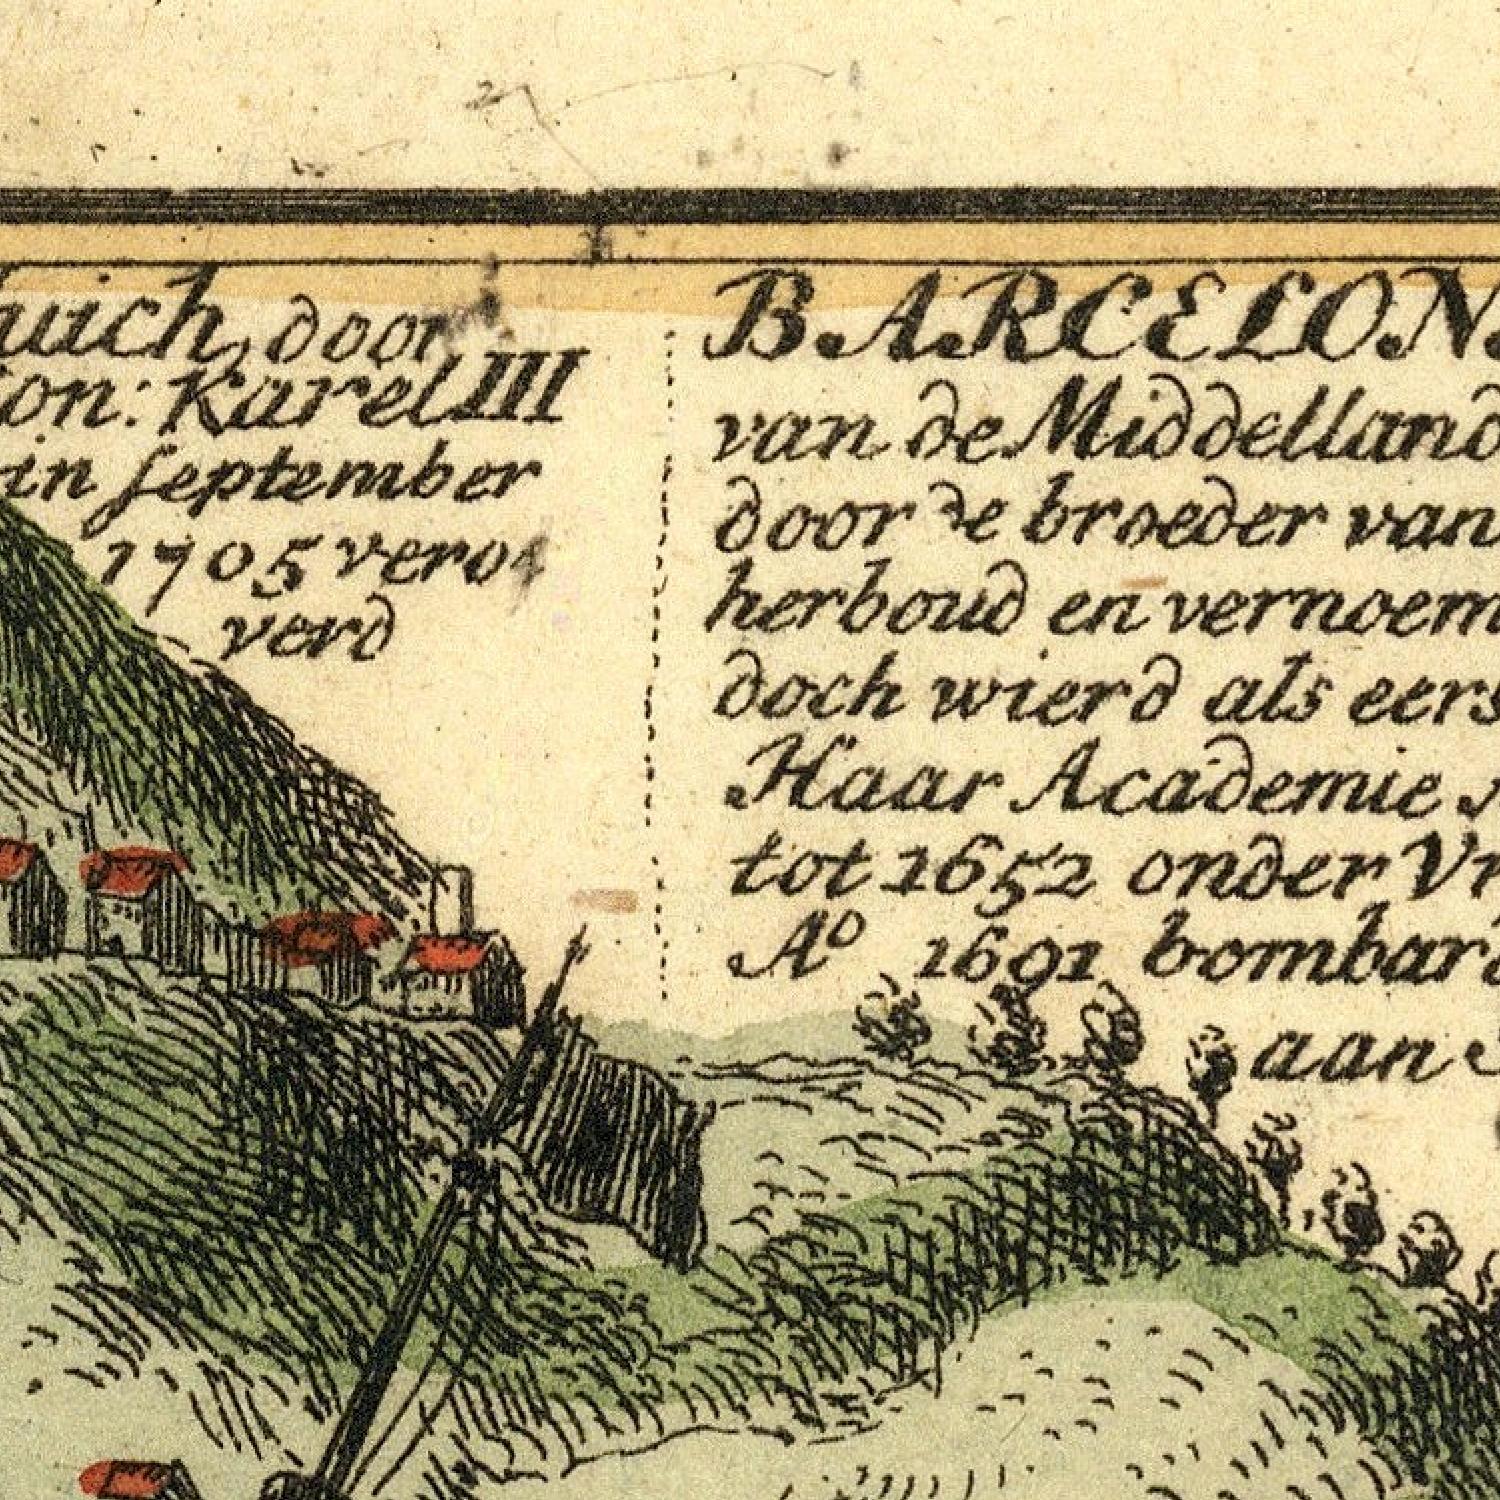 uich, door
on: Karel III
in september
1705 vero
verd
BARCELON
van de Middelland
door de broeder van
herboud en vernoem
doch wierd als eers
Haar Academie
tot 1652 onder Vr
Aº 1691 bombard
aan